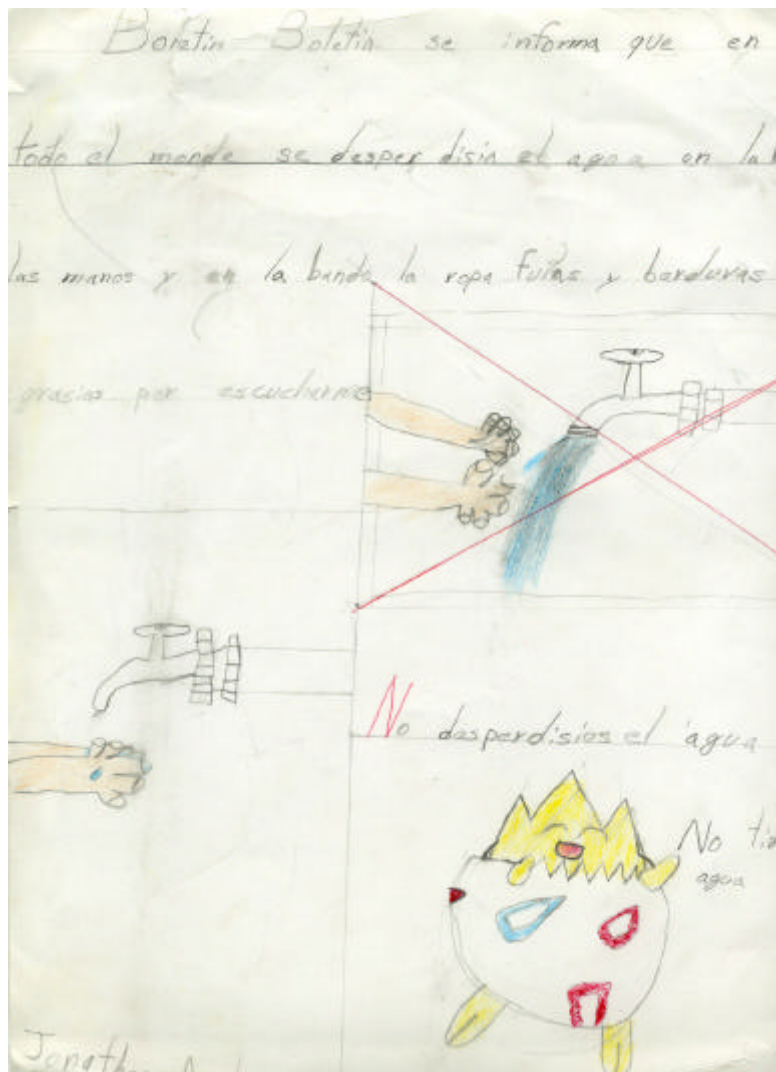 Boletin Boletin se informa que en
todo el mundo se desper disia el agua en la
las manos y en la banda la ropa frutas y barduras
grasias por escucharme
No desperdisies el agua
No
agua